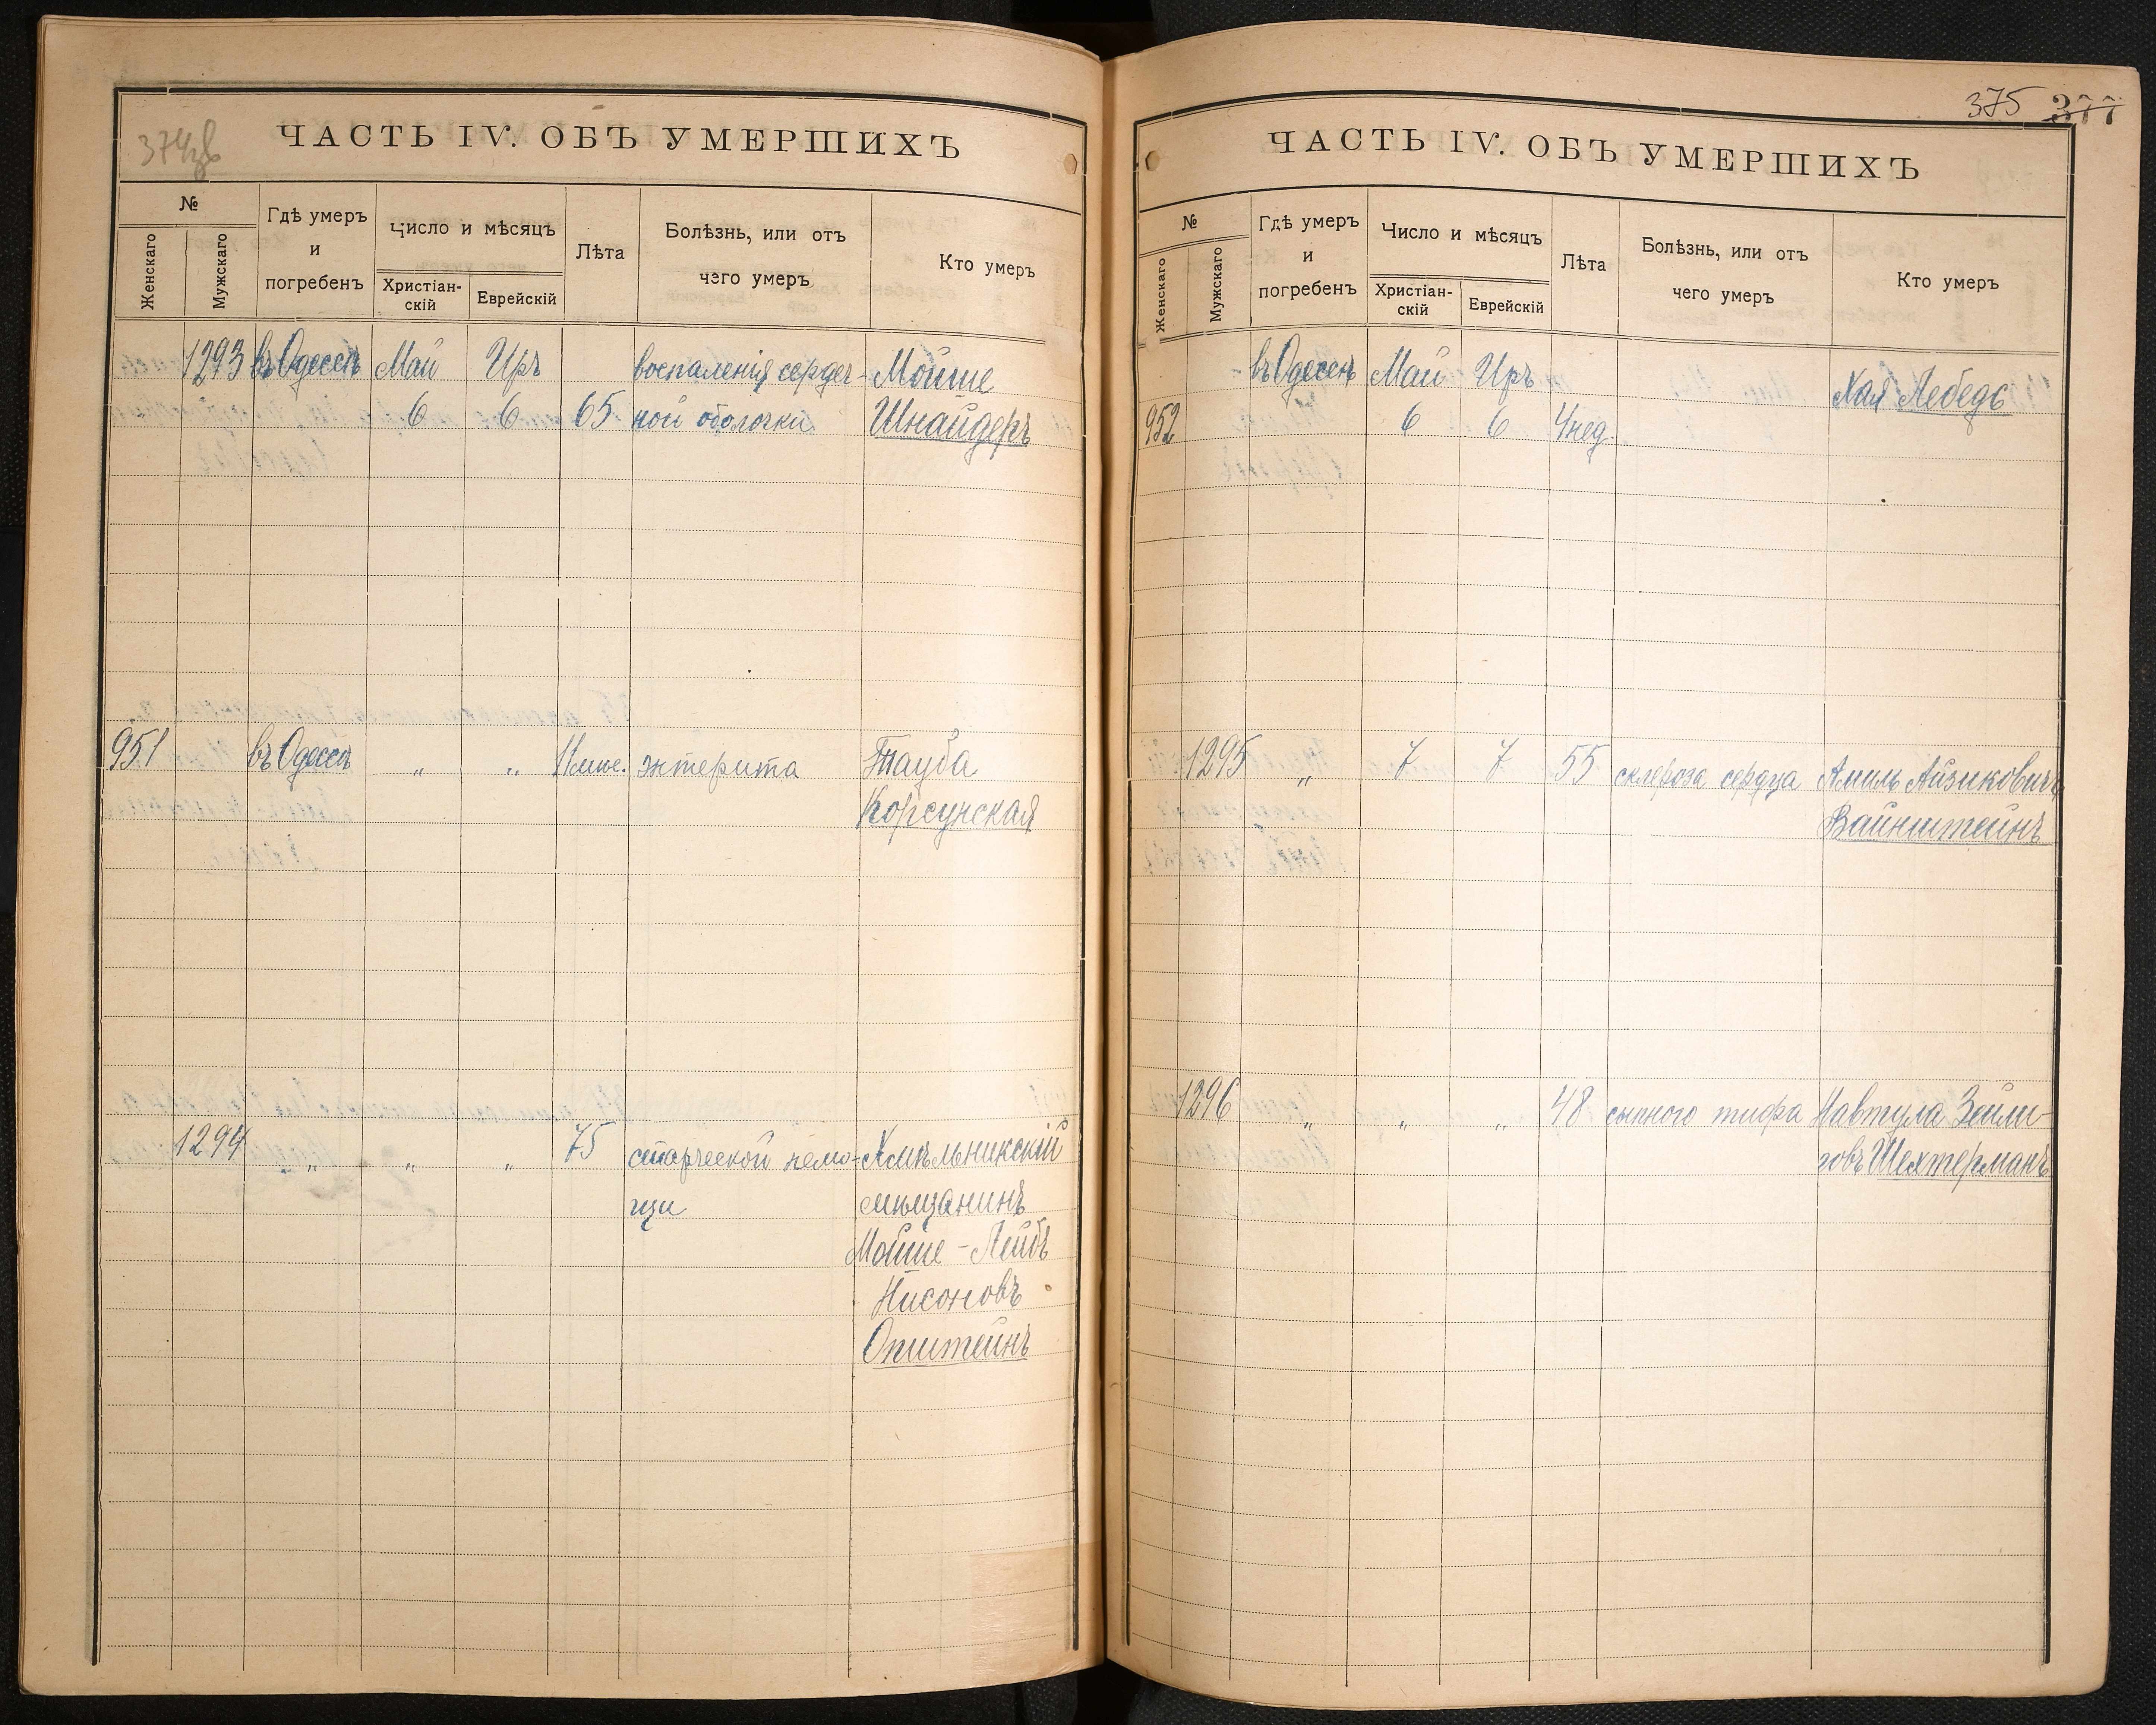 374 зв
ЧАСТЬ IV. ОБЪ УМЕРШИХЪ
№
Женскаго
Мужскаго
Гдѣ умеръ
и
погребенъ
Число и мѣсяцъ
Христіан-
скій
Еврейскій
Лѣта
Болѣзнь, или отъ
чего умеръ
Кто умеръ
1293 въ Одессѣ Май Иръ воспаленія сердеч- Мойше
6 6 65 ной оболочки Шнайдеръ
951 въ Одессѣ „ „ 11 мис. энтерита Тауба
Корсунская
1294 „ „ „ 75 старческой немо- Хмѣльникскій
щи мѣщанинъ
Мойше-Лейбъ
Нисоновъ
Општейнъ
375 377
ЧАСТЬ IV. ОБЪ УМЕРШИХЪ
№
Женскаго
Мужскаго
Гдѣ умеръ
и
погребенъ
Число и мѣсяцъ
Христіан-
скій
Еврейскій
Лѣта
Болѣзнь, или отъ
чего умеръ
Кто умеръ
въ Одессѣ Май Иръ Хая Лебедь
952 6 6 4 нед.
1295 „ 7 7 55 склероза сердца Амиль Айзиковичъ
Вайнштейнъ
1296 „ „ „ 48 сыпного тифа Навтула Зейли-
говъ Шехтерманъ